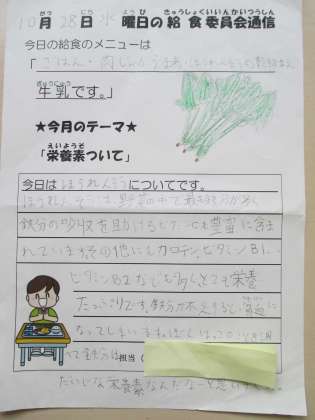 10月28日 水曜日の給食委員会通信
今日の給食のメニューは
「ごはん・肉じゃが
牛乳です。」
★今月のテーマ★
「栄養素ついて」
今日はほうれんそうについてです。
ほうれんそうは、野菜の中で最も鉄分が多く
鉄分の吸収を助けるビタミンCも豊富に含ま
れています。その他にもカロテン、ビタミンB1、
ビタミンB2なども多くとても栄養
たっぷりです。鉄分が不足すると貧血に
なってしまいます。
べて鉄分は
担当(
だいじな栄養素なんだなーと思いました。